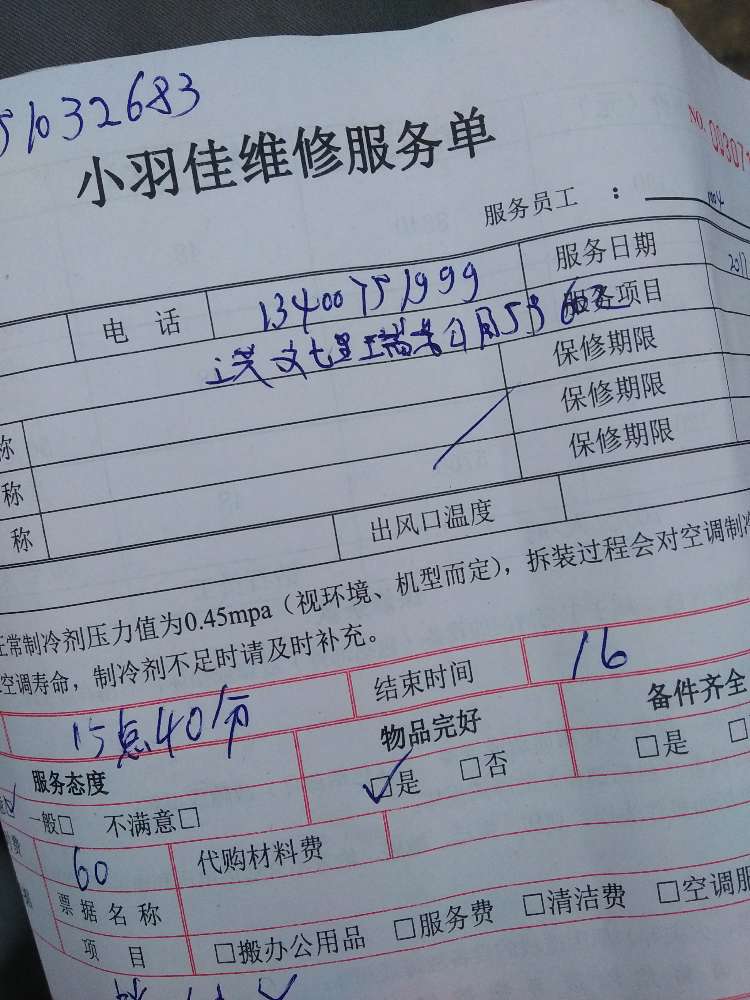 51032683
NO. 003071
小羽佳维修服务单
服务员工 ：
电 话 13400751999 服务日期 201
服务项目
保修期限
称 保修期限
称 保修期限
称 出风口温度
正常制冷剂压力值为0.45mpa（视环境、机型而定），拆装过程会对空调制冷
空调寿命，制冷剂不足时请及时补充。
15点40分 结束时间 16
服务态度 物品完好 备件齐全
一般□ 不满意□ □是 □否 □是 □
费 60 代购材料费
票据名称
项 目 □搬办公用品 □服务费 □清洁费 □空调服